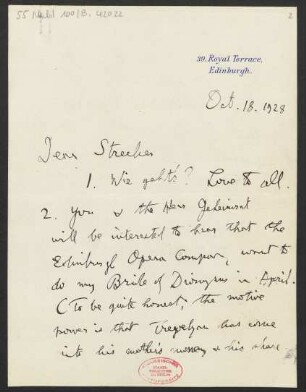 55 Nachl 100/B,
2
39, Royal Terrace,
Edinburgh.
Oct. 18. 1928
Dear Strecker
1. Wie geht's? Love to all.
2. You & the Herr Geheimrat
will be interested to hear that the
Edinburgh Opera Company want to
do my Bride of Dionysus in April.
(To be quite honest the motive
power is that Trevelyan has come
into his mother's money & his share